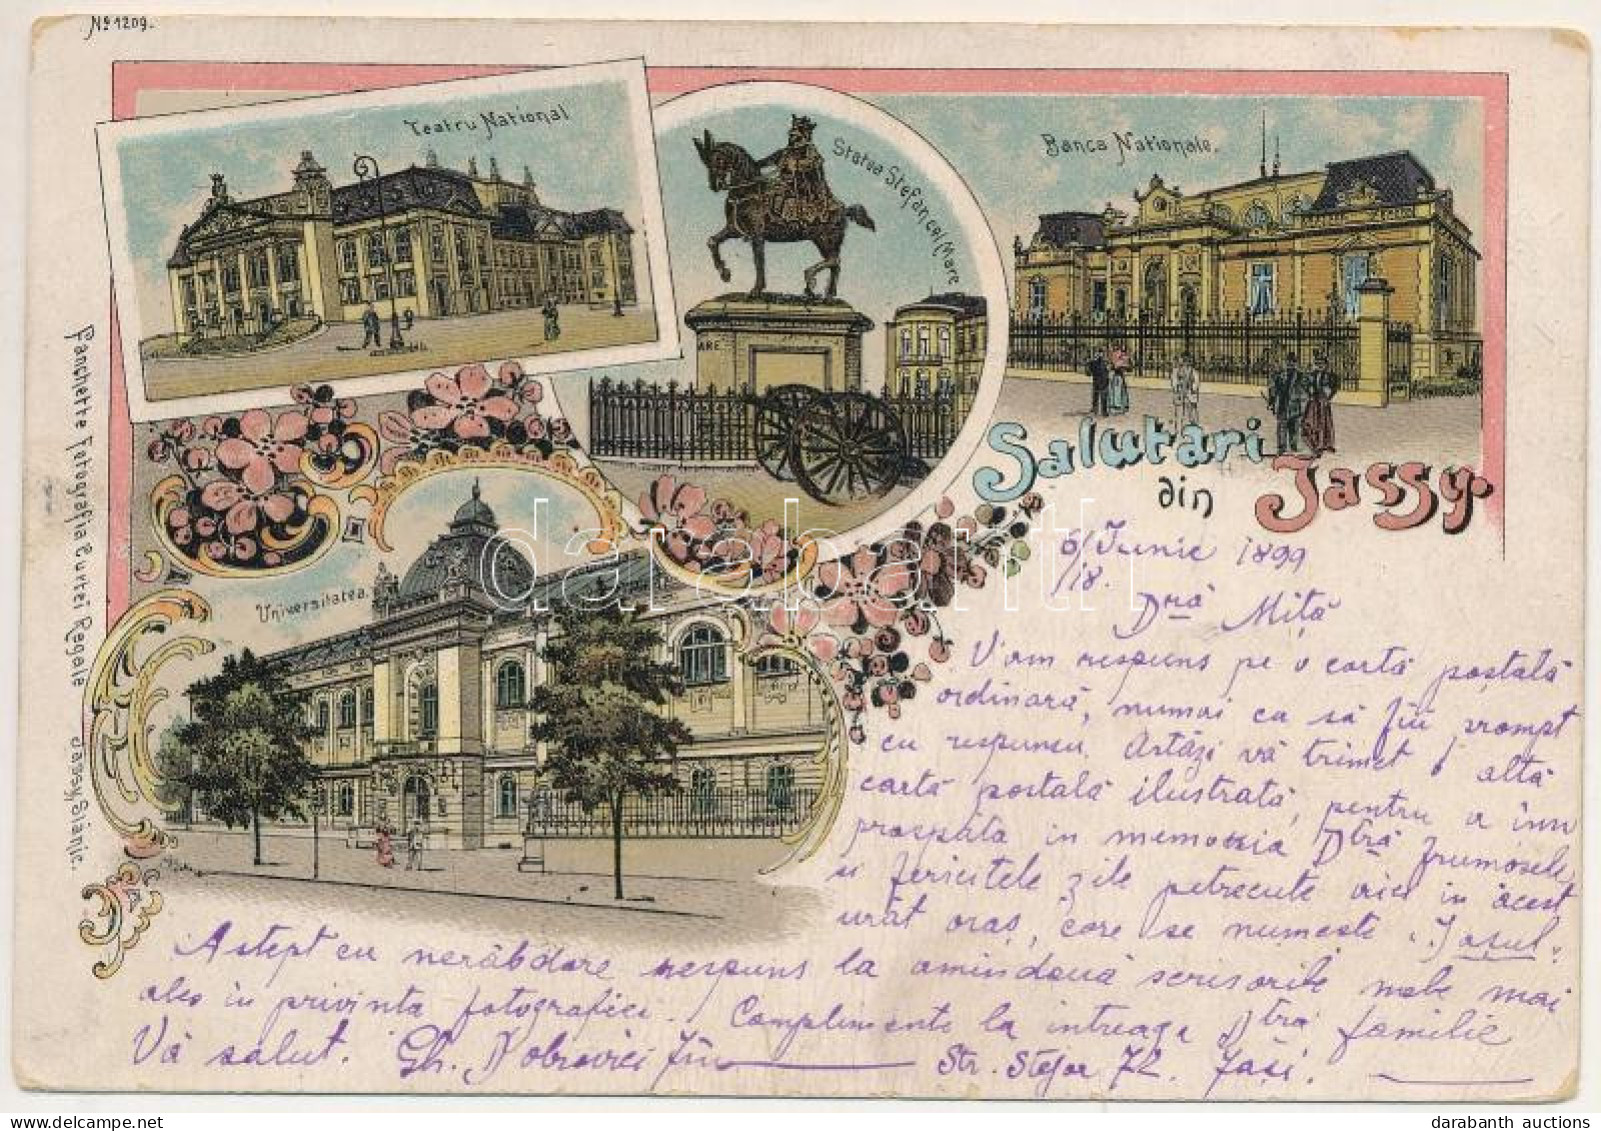 No 1209.
Teatru National
Statea Stefan cel Mare
ARE
Banca Nationale.
Salutari
din Jassy.
Universitatea.
Fanchette Fotografia Curtei Regale Jassy, Slănic.
6/18. Junie 1899
Dră Miță
V'am respuns pe o cartă poștală
ordinară, numai ca să fiu prompt
cu respunsu. Astăzi vă trimet o altă
cartă postală ilustrată, pentru a o ținea
prospăta in memoria Dtră frumosele,
si fericitele zile petrecute aici in acest
urât oraș, care se numeste "Iașul".
Astept cu nerăbdare respuns la amindouă scrisorile mele mai
ales in privinta fotografiei. Complimente la intreaga Dtră familie
Vă salut. Gh. Dobrovici fiu Str. Stefan 72. Iași.
darabanth
darabanth auctions